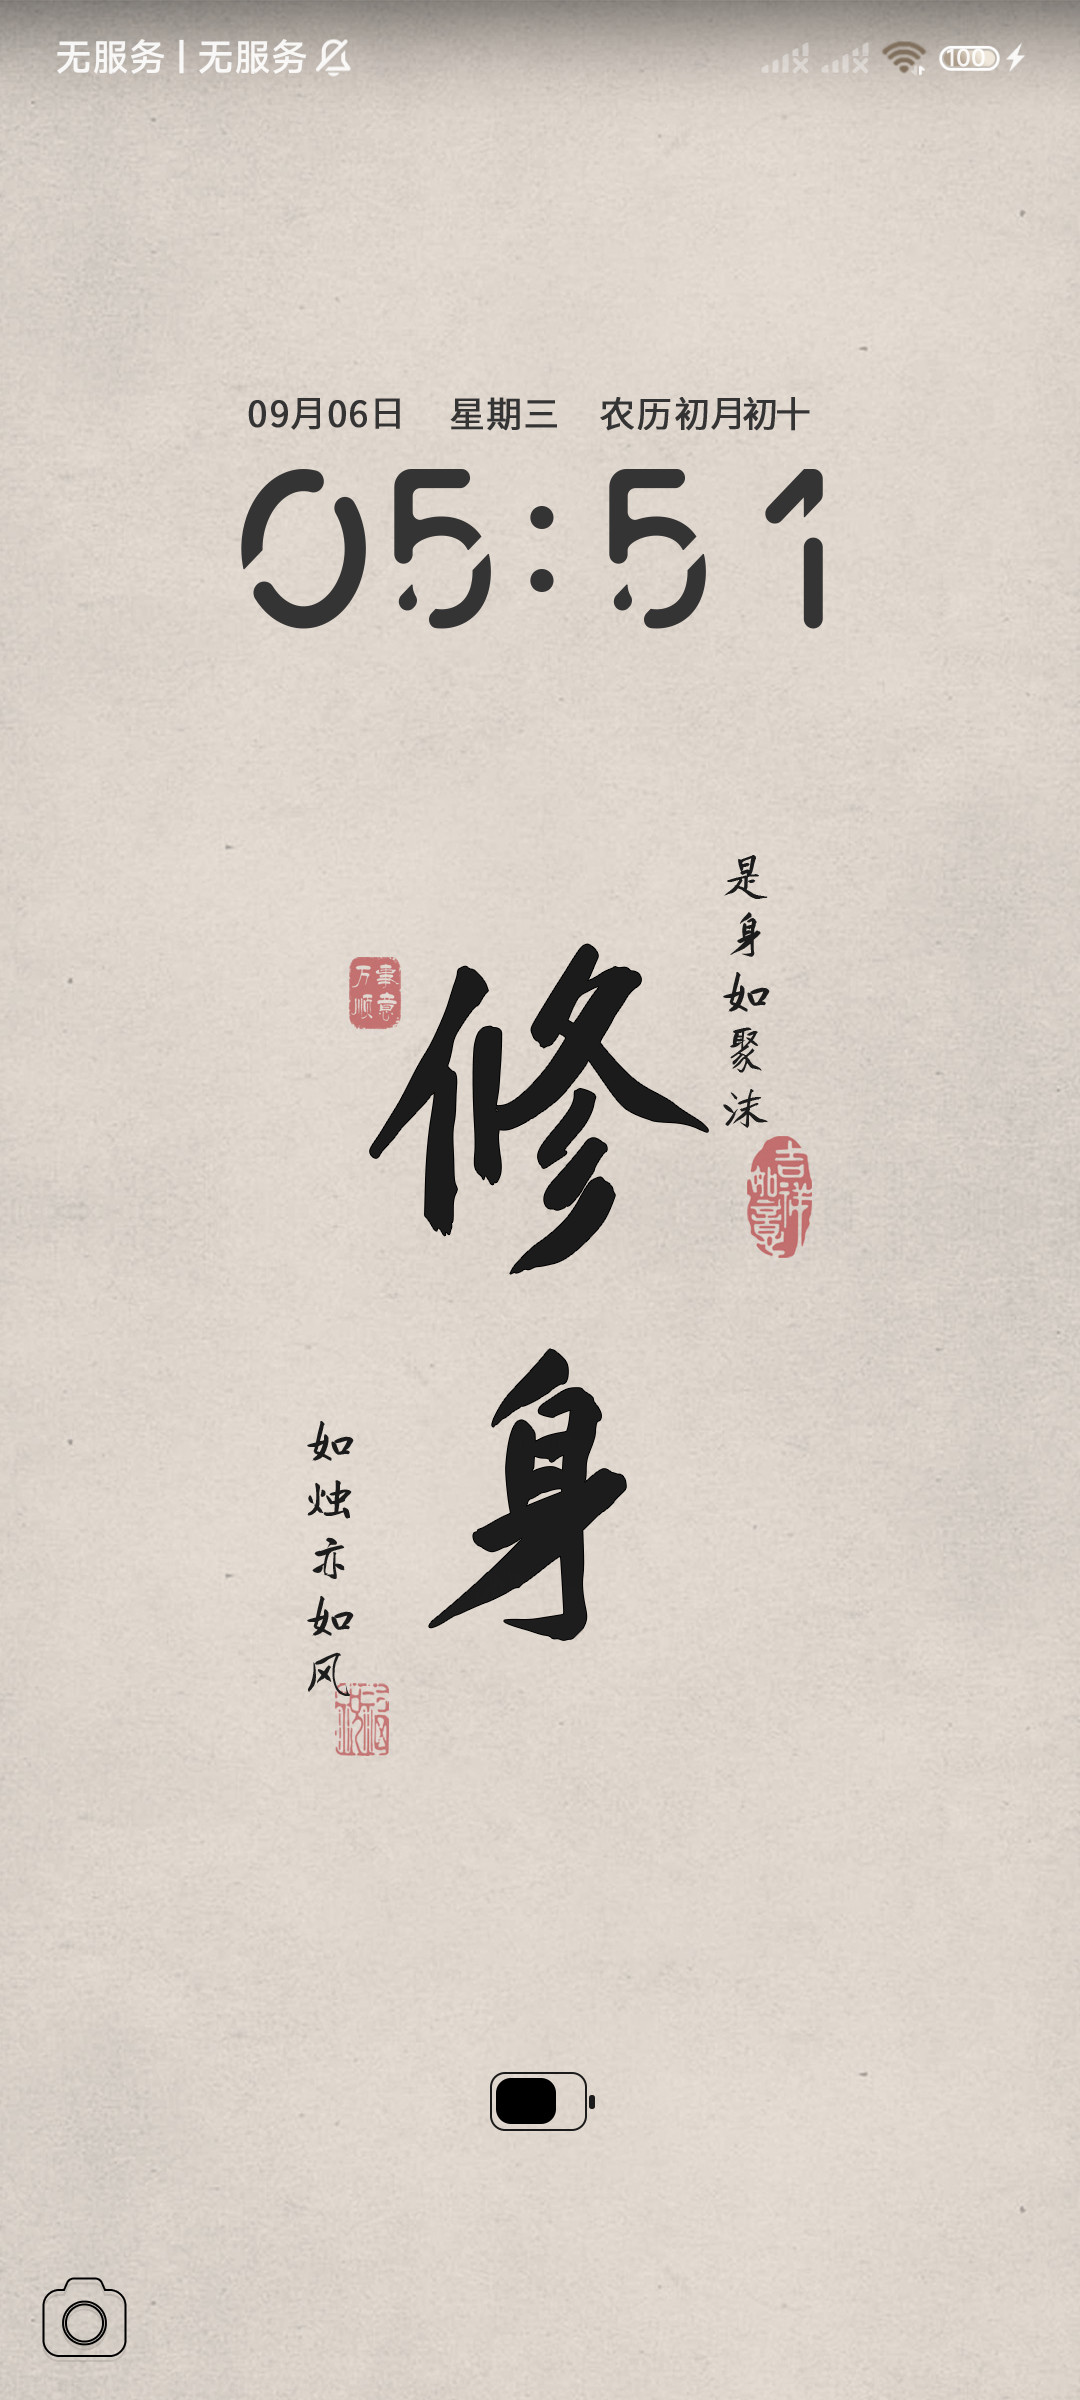 无服务 | 无服务
100
09月06日 星期三 农历初月初十
05:51
是身如聚沫
吉祥如意
万事顺意
修身
如烛亦如风